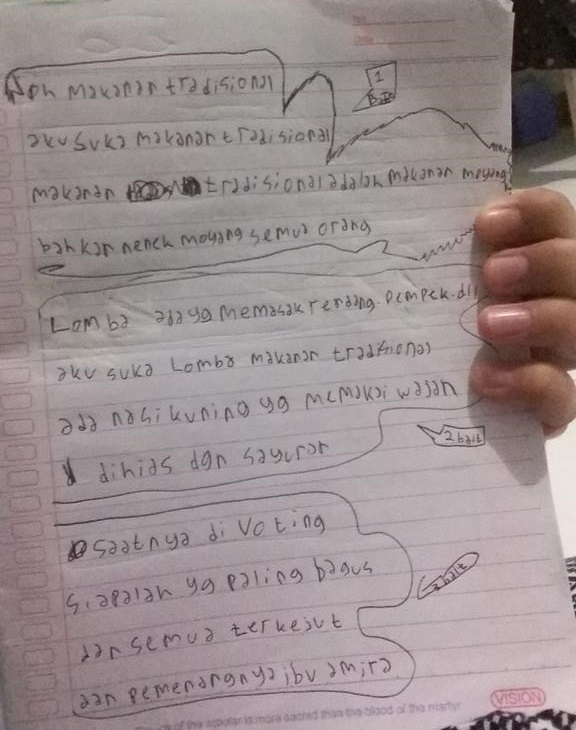 Noh makanan tradisional
1
Bab
aku suka makanan tradisional
makanan tradisional adalah makanan moyang
bahkan nenek moyang semua orang
Lomba ada yg memasak rendang. Pempek. dll
aku suka Lomba makanan tradisional
ada nasi kuning yg memakai wajan
dihias dgn sayuran
2 bait
saatnya di voting
siapalah yg paling bagus
dan semua terkejut
dan pemenangnya ibu amira
of the scholar is more sacred than the blood of the martyr
VISION